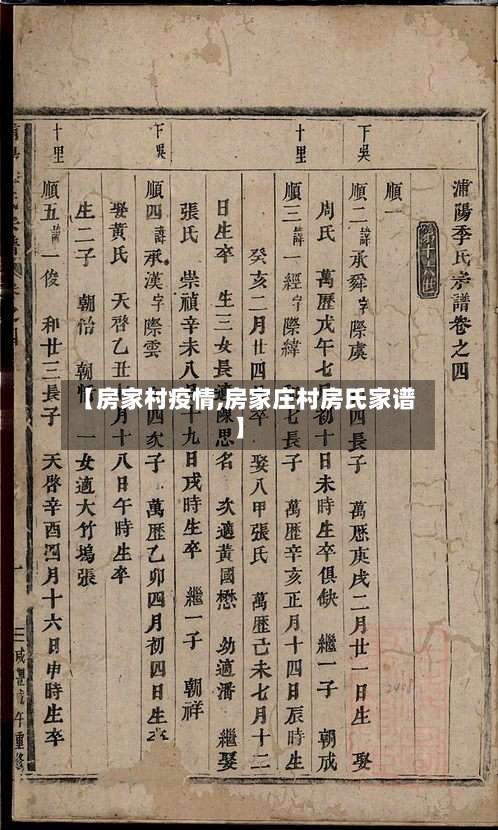 浦陽季氏宗譜卷之四
順一
下吳
順二 諱承舜字際虞 四長子 萬歷庚戌二月廿一日生 娶
周氏 萬歷戊午七月初十日未時生卒俱缺 繼一子 朝成
十里
順三 諱一經字際緯 七長子 萬歷辛亥正月十四日辰時生
癸亥二月廿四 卒 娶八甲張氏 萬歷己未七月十二
日生卒 生三女長適陳思名 次適黃國懋 幼適潘 繼娶
張氏 崇禎辛未八月十九日戌時生卒 繼一子 朝祥
下吳
順四 諱承漢字際雲 四次子 萬歷乙卯四月初四日生卒
娶黃氏 天啓乙丑 月十八日午時生卒
生二子 朝怡 朝 一女適大竹塢張
十里
順五 諱一俊 和廿三長子 天啓辛酉四月十六日申時生卒
咸豐 午重修
【房家村疫情,房家庄村房氏家谱
】